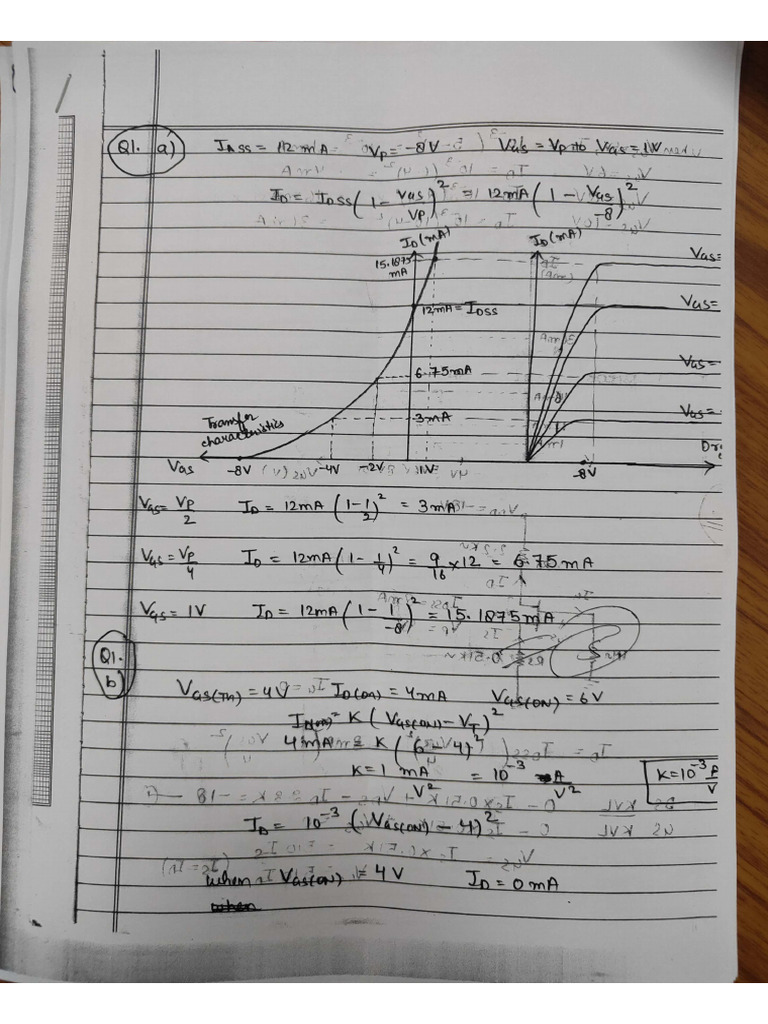 Q1. a) IDSS = 12mA VP = -8V VGS = VP to VGS = 1V
ID = IDSS (1 - VGS/VP)² = 12mA (1 - VGS/-8)²
ID (mA) ID (mA)
15.1875 mA VGS=
12mA = IDSS VGS=
6.75mA VGS=
Transfer characteristics 3mA VGS=
VGS -8V -4V -2V 1V -8V
VGS = VP/2 ID = 12mA (1 - 1/2)² = 3mA
VGS = VP/4 ID = 12mA (1 - 1/4)² = 9/16 × 12 = 6.75mA
VGS = 1V ID = 12mA (1 - 1/-8)² = 15.1875mA
Q1. b)
VGS(Th) = 4V ID(ON) = 4mA VGS(ON) = 6V
ID(ON) = K (VGS(ON) - VT)²
4mA = K (6 - 4)²
K = 1 mA/V² = 10⁻³ A/V² K = 10⁻³ A/V
ID = 10⁻³ (VGS(ON) - 4)²
when VGS(ON) = 4V ID = 0mA
when